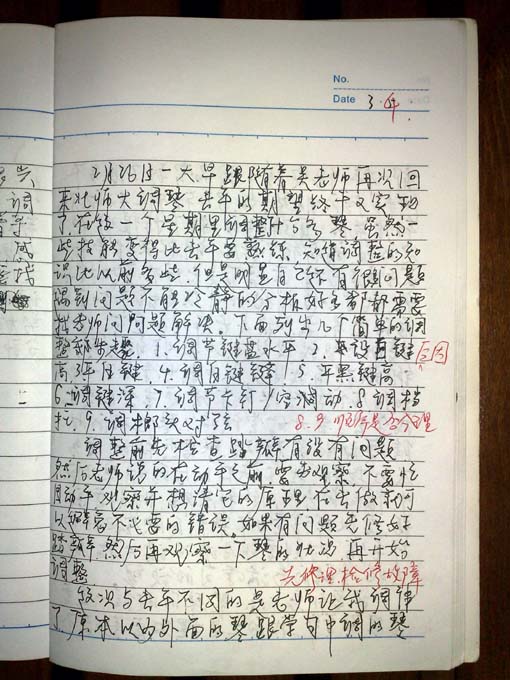 No.
Date 3.4.
2月26日一大早跟随着吴老师再次回
来北师大调琴 去年的期望终于又实现
了 在这一个星期里调整
些技能变得比去年要熟练 知道调整的知
识比以前多些 但是明显自己还有很多问题
遇到问题不能冷静的分析 好多都需要
找老师问问题解决。下面列出几个简单的调
整步骤 1.调节键盘水平 2.
高 3.白键 4.调白键 5.平黑键高
6.调键深 7.调节 8.调档
9.调榔头对弦 8.9 顺序是否合理
调整前先检查踏瓣有没有问题
然后老师说的在动手之前 要多观察 不要忙
因动手 观察并想清它的原理 在去做就可
以避免不必要的错误 如果有问题先修好
踏瓣 然后再观察一下琴的状况 再开始
调整 先修理.检修故障
这次与去年不同的是老师让我调律
了 原本以为外面的琴跟学习中调的琴